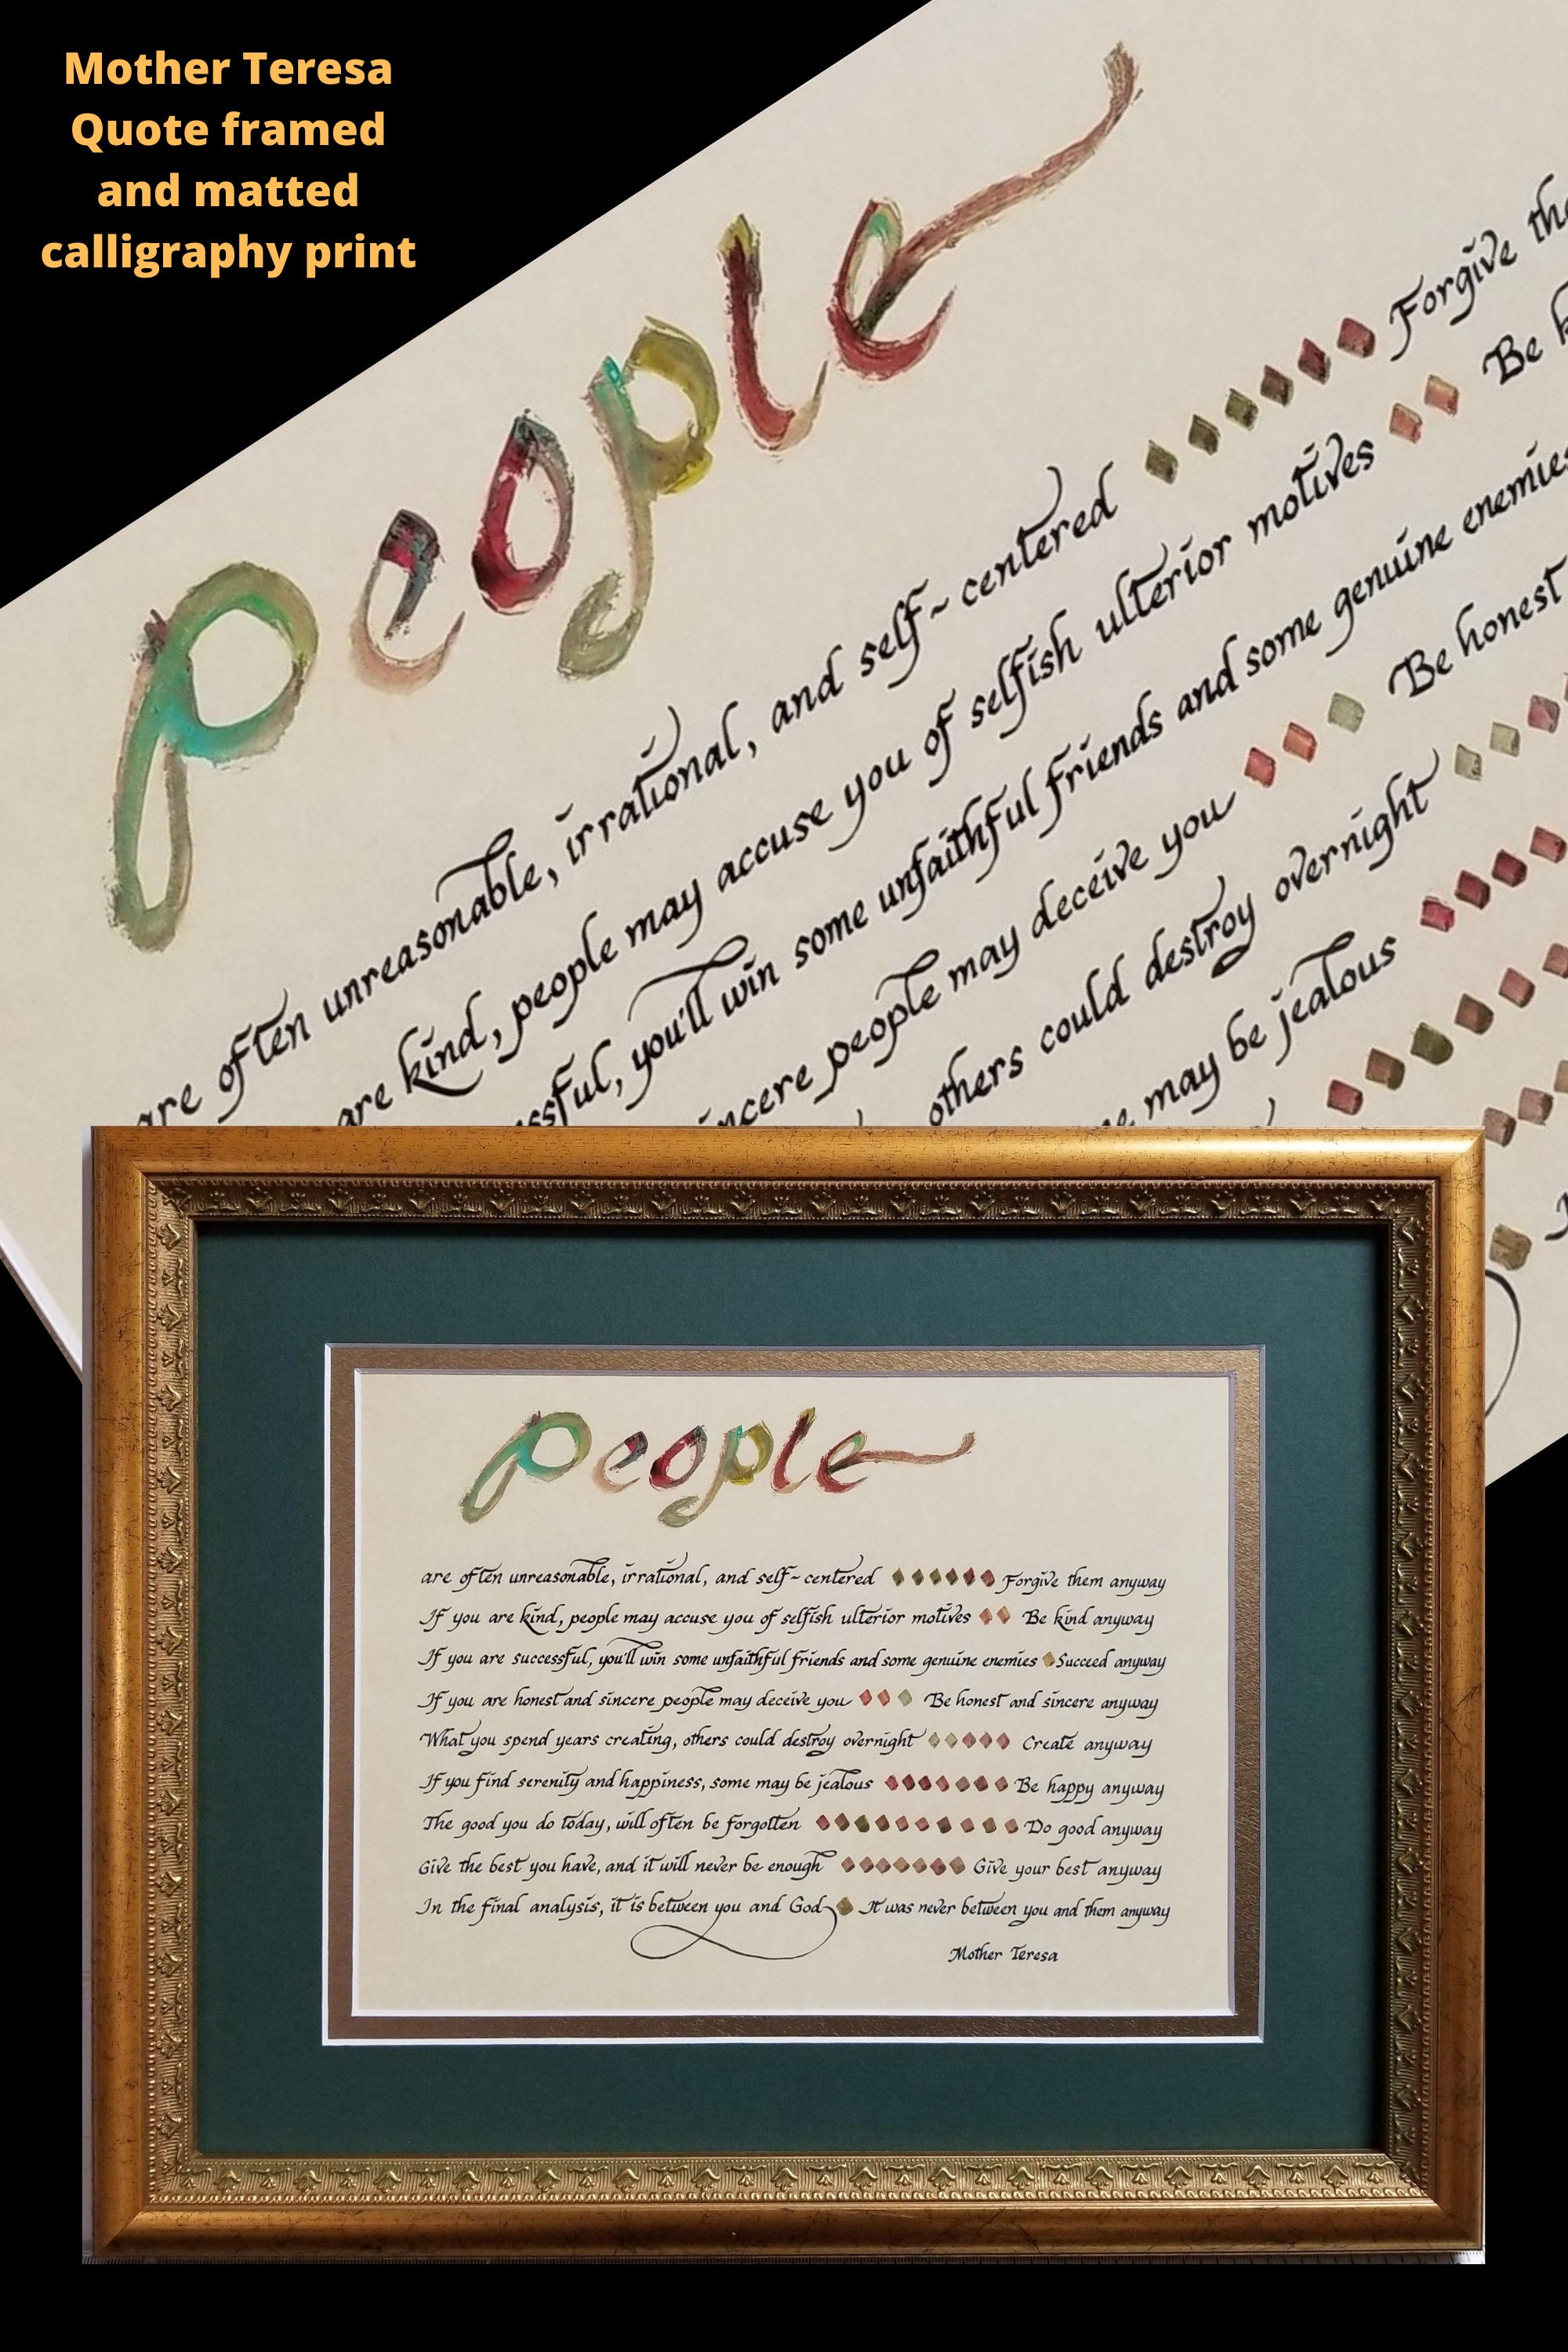 Mother Teresa
Quote framed
and matted
calligraphy print
people
are often unreasonable, irrational, and self-centered Forgive the
are kind, people may accuse you of selfish ulterior motives Be k
ssful, you'll win some unfaithful friends and some genuine enemies
incere people may deceive you Be honest
others could destroy overnight
me may be jealous
people
are often unreasonable, irrational, and self-centered Forgive them anyway
If you are kind, people may accuse you of selfish ulterior motives Be kind anyway
If you are successful, you'll win some unfaithful friends and some genuine enemies Succeed anyway
If you are honest and sincere people may deceive you Be honest and sincere anyway
What you spend years creating, others could destroy overnight Create anyway
If you find serenity and happiness, some may be jealous Be happy anyway
The good you do today, will often be forgotten Do good anyway
Give the best you have, and it will never be enough Give your best anyway
In the final analysis, it is between you and God It was never between you and them anyway
Mother Teresa